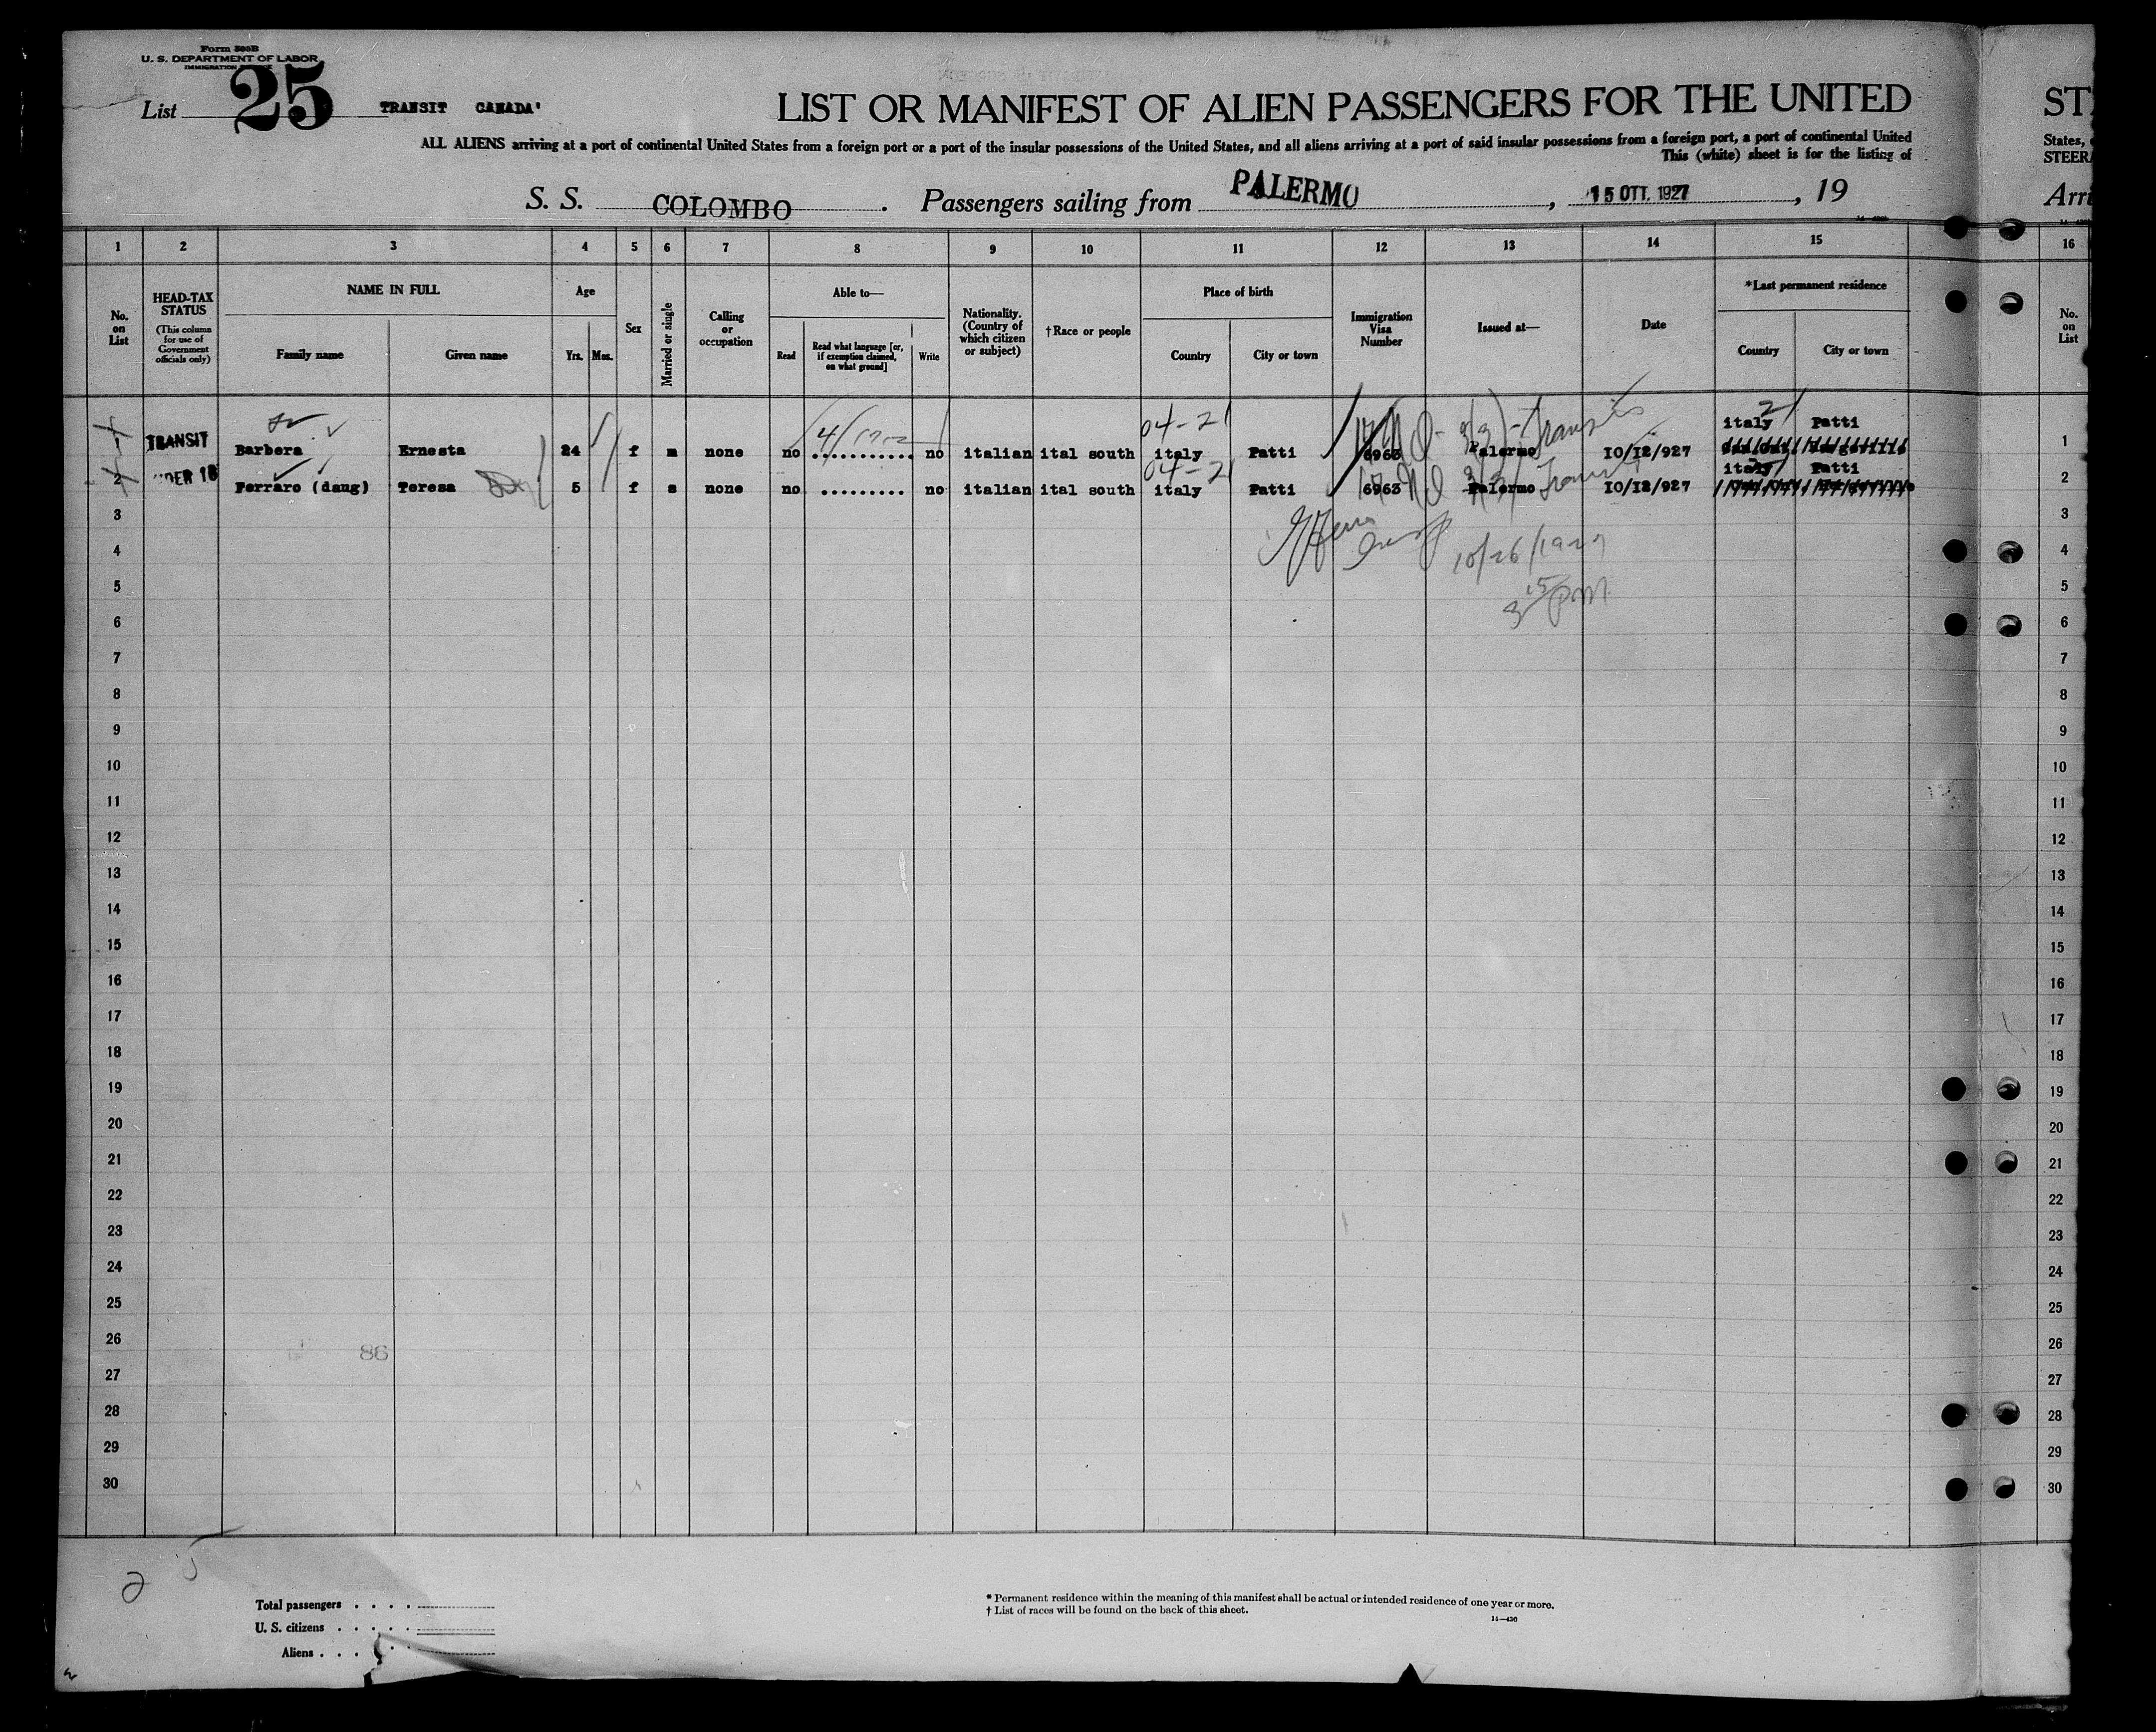 Form 500B
U. S. DEPARTMENT OF LABOR
IMMIGRATION
List 25 TRANSIT CANADA'
LIST OR MANIFEST OF ALIEN PASSENGERS FOR THE UNITED
ALL ALIENS arriving at a port of continental United States from a foreign port or a port of the insular possessions of the United States, and all aliens arriving at a port of said insular possessions from a foreign port, a port of continental United
This (white) sheet is for the listing of
S. S. COLOMBO . Passengers sailing from PALERMO , 15 OTT. 1927 , 19
ST
States,
STEER
Arri
1 2 3 4 5 6 7 8 9 10 11 12 13 14 15 16
No. on List
HEAD-TAX STATUS (This column for use of Government officials only)
NAME IN FULL
Family name Given name
Age
Yrs. Mos.
Sex
Married or single
Calling or occupation
Able to—
Read Read what language [or, if exemption claimed, on what ground] Write
Nationality. (Country of which citizen or subject)
†Race or people
Place of birth
Country City or town
Immigration Visa Number
Issued at—
Date
*Last permanent residence
Country City or town
No. on List
04-21 2
italy Patti
1 TRANSIT Barbera Ernesta 24 f m none no ........... no italian ital south italy Patti 6963 Palermo Transit 10/12/927 1
04-2 italy Patti
2 UNDER 16 Ferraro (daug) Teresa 5 f s none no ......... no italian ital south italy Patti 6963 Palermo Transit 10/12/927 2
3 3
4 10/26/1927 4
5 3 15 PM. 5
6 6
7 7
8 8
9 9
10 10
11 11
12 12
13 13
14 14
15 15
16 16
17 17
18 18
19 19
20 20
21 21
22 22
23 23
24 24
25 25
26 86 26
27 27
28 28
29 29
30 30
2
Total passengers . . . .
U. S. citizens . . . . .
Aliens . . . . . .
* Permanent residence within the meaning of this manifest shall be actual or intended residence of one year or more.
† List of races will be found on the back of this sheet.
14—430